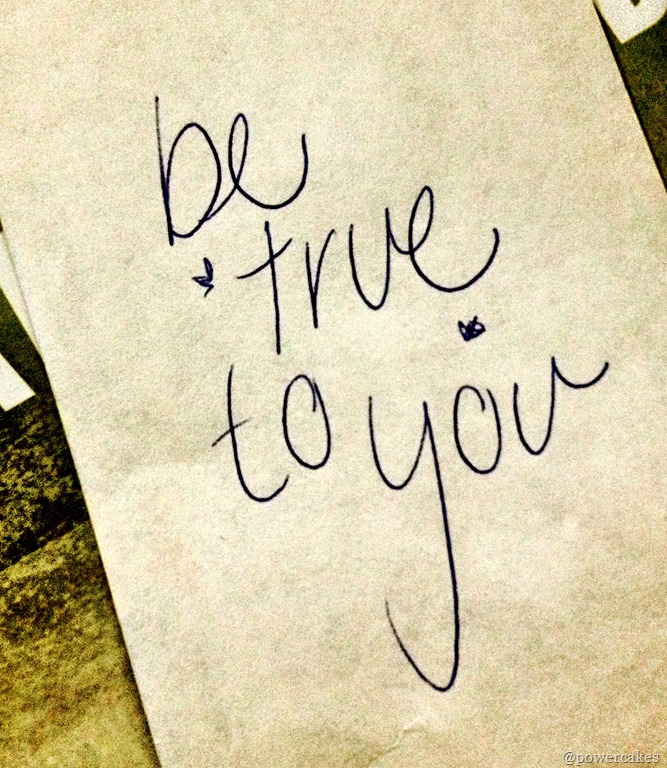 be
true
to you
@powercakes